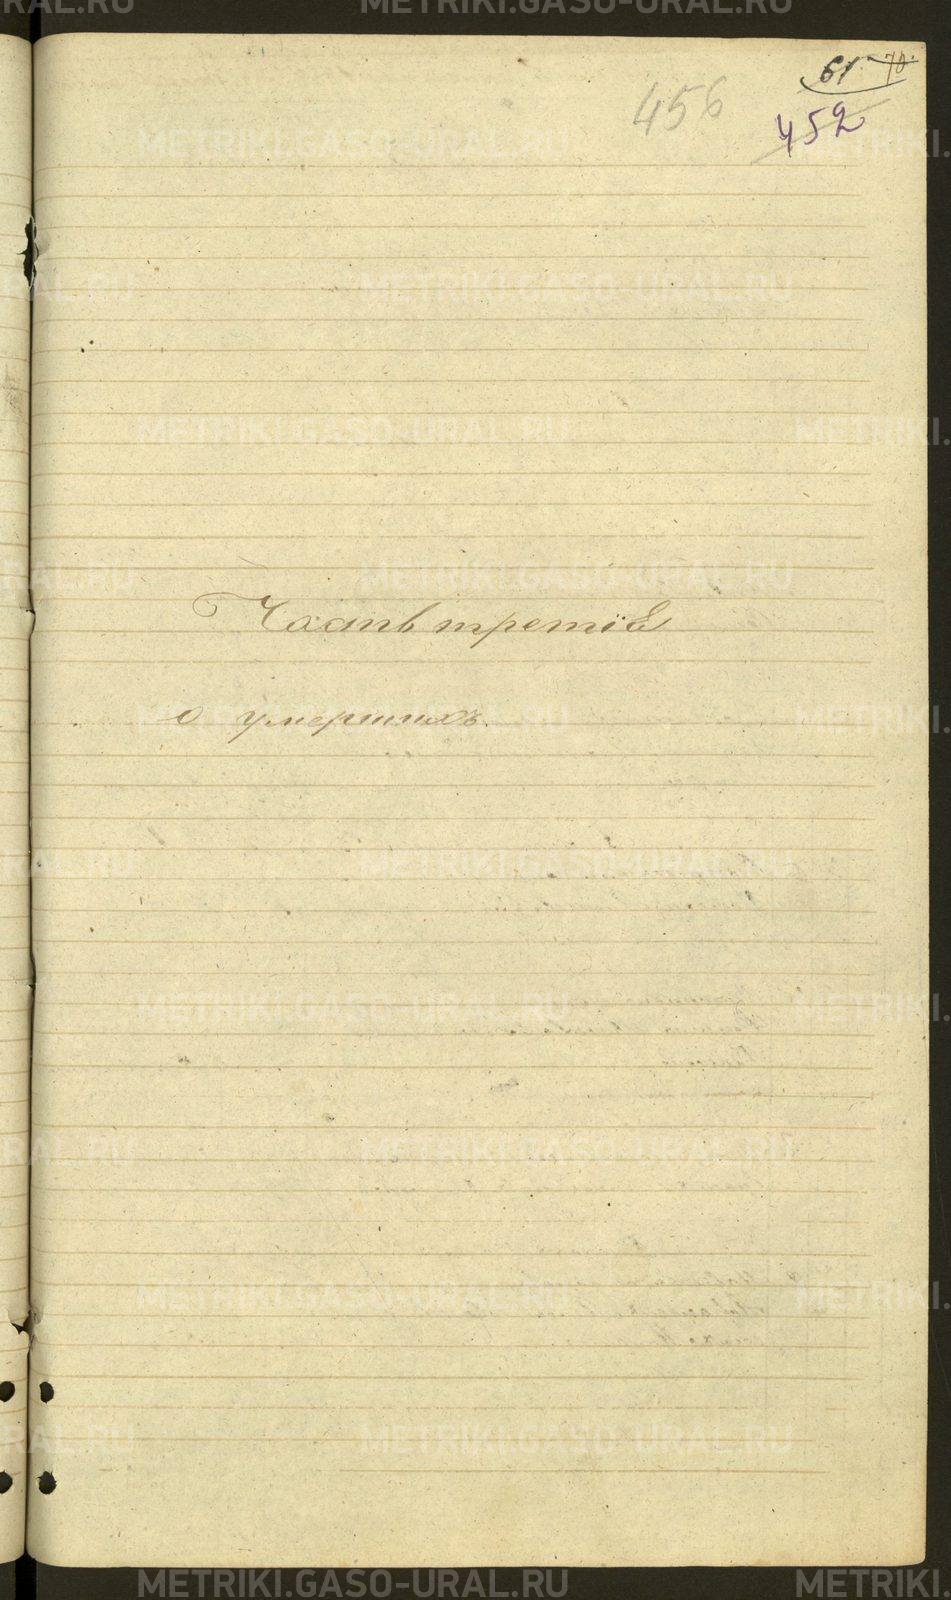 61. 70.
456
452
Часть третія
о умершихъ.
METRIKI.GASO-URAL.RU